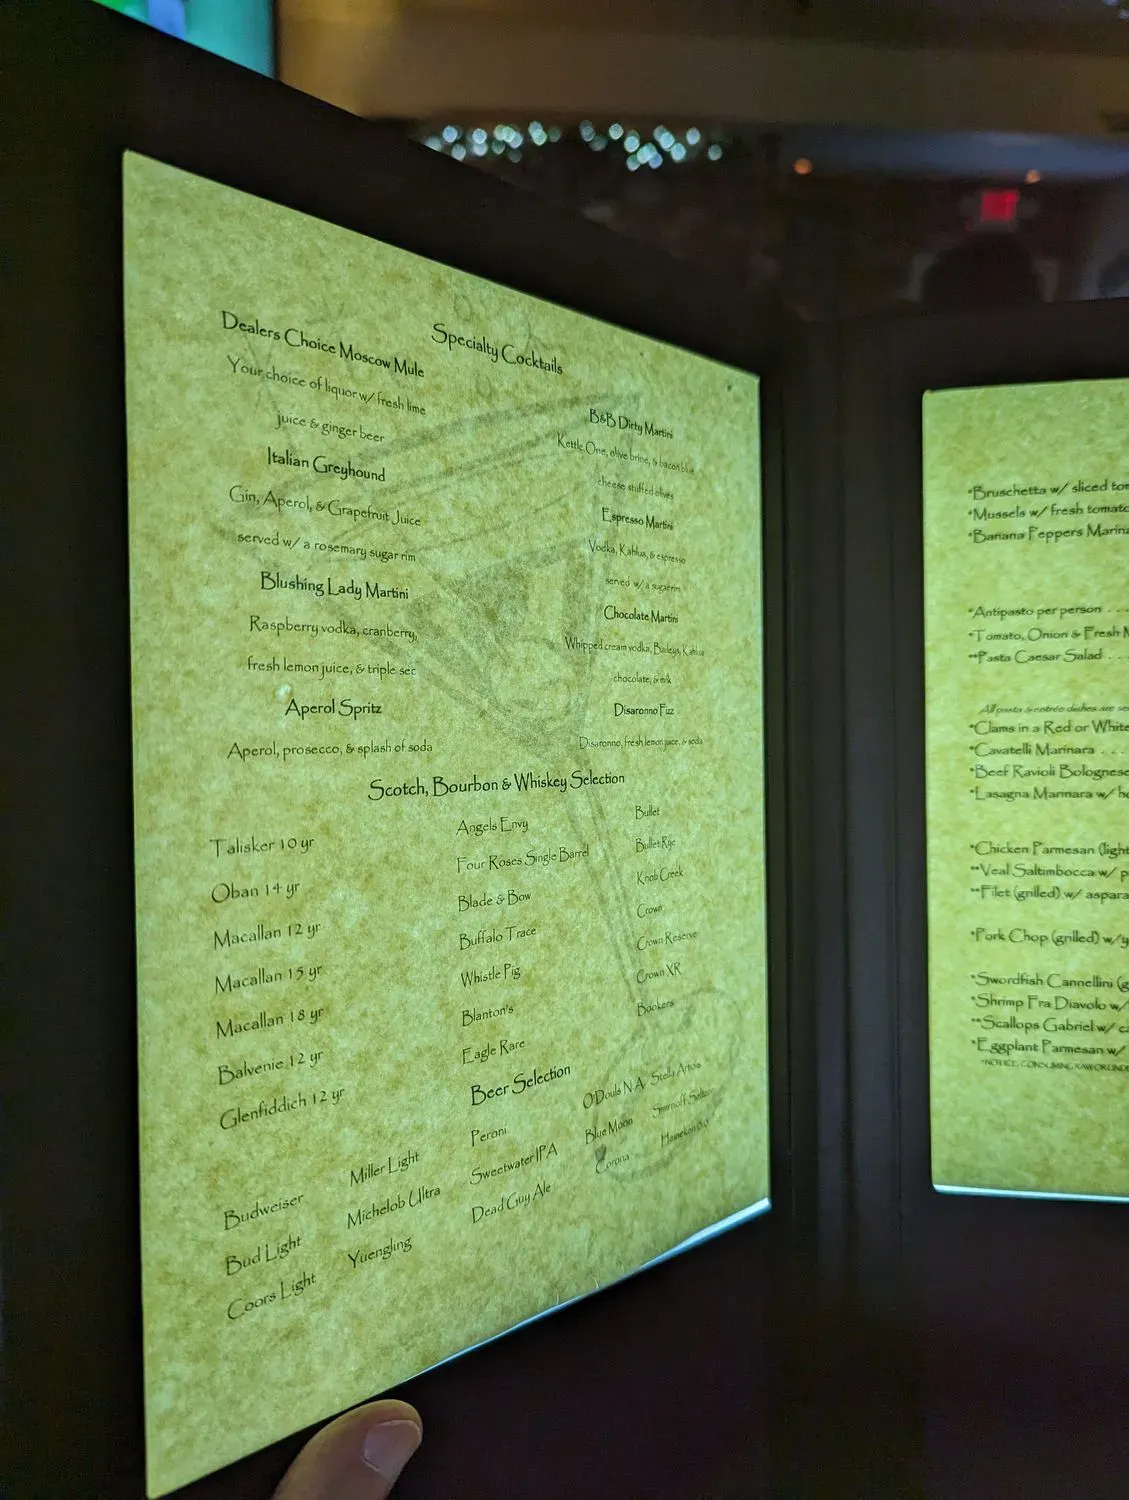 Specialty Cocktails
Dealers Choice Moscow Mule
Your choice of liquor w/ fresh lime
juice & ginger beer
Italian Greyhound
Gin, Aperol, & Grapefruit Juice
served w/ a rosemary sugar rim
Blushing Lady Martini
Raspberry vodka, cranberry,
fresh lemon juice, & triple sec
Aperol Spritz
Aperol, prosecco, & splash of soda
B&B Dirty Martini
Kettle One, olive brine, & bacon blue
cheese stuffed olives
Espresso Martini
Vodka, Kahlua, & espresso
served w/ a sugar rim
Chocolate Martini
Whipped cream vodka, Baileys, Kahlua
chocolate, & milk
Disaronno Fizz
Disaronno, fresh lemon juice, & soda
Scotch, Bourbon & Whiskey Selection
Talisker 10 yr
Oban 14 yr
Macallan 12 yr
Macallan 15 yr
Macallan 18 yr
Balvenie 12 yr
Glenfiddich 12 yr
Angels Envy
Four Roses Single Barrel
Blade & Bow
Buffalo Trace
Whistle Pig
Blanton's
Eagle Rare
Bullet
Bullet Rye
Knob Creek
Crown
Crown Reserve
Crown XR
Bookers
Beer Selection
Budweiser
Bud Light
Coors Light
Miller Light
Michelob Ultra
Yuengling
Peroni
Sweetwater IPA
Dead Guy Ale
O'Douls N.A.
Blue Moon
Corona
Stella Artois
Smirnoff Seltzer
Heineken 0.0
*Bruschetta w/ sliced
*Mussels w/ fresh
*Banana Peppers
*Antipasto per person . . .
*Tomato, Onion & Fresh
**Pasta Caesar Salad . . .
All pasta & entrée dishes are
*Clams in a Red or White
*Cavatelli Marinara . . .
*Beef Ravioli Bolognese
*Lasagna Marinara w/
*Chicken Parmesan (light
**Veal Saltimbocca w/
**Filet (grilled) w/
*Pork Chop (grilled) w/
*Swordfish Cannellini
*Shrimp Fra Diavolo w/
**Scallops Gabriel w/
*Eggplant Parmesan w/
*NOTICE: CONSUMING RAW OR